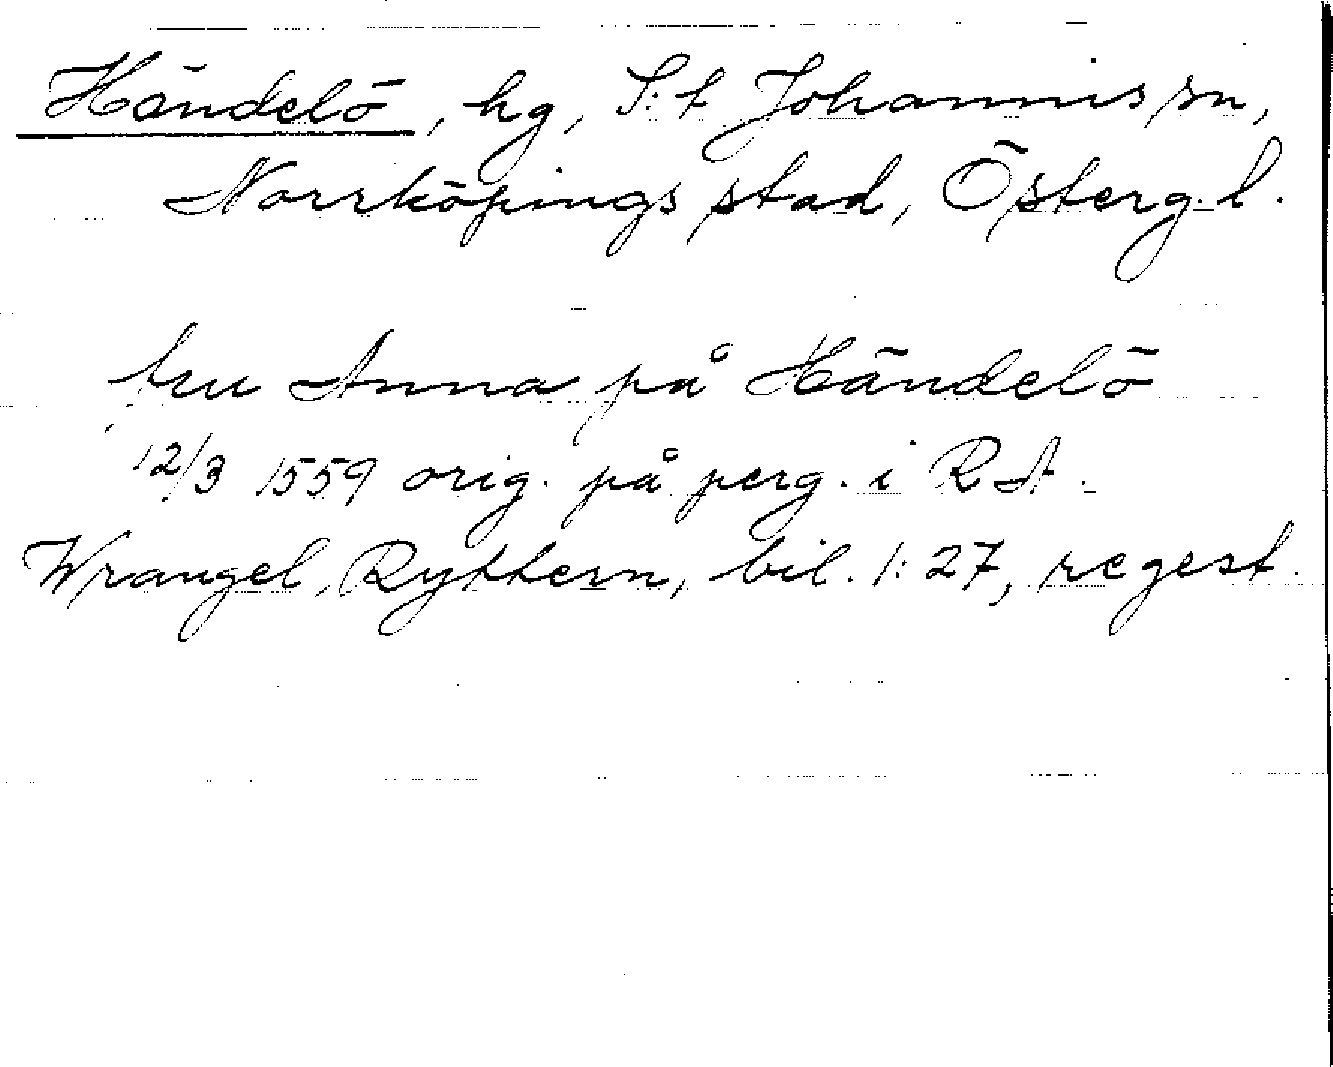 Händelö, hg, S:t Johannis sn,
Norrköpings stad, Österg.l.
fru Anna på Händelö
12/3 1559 orig. på perg. i RA.
Wrangel, Ryttern, bil. 1:27, regest.